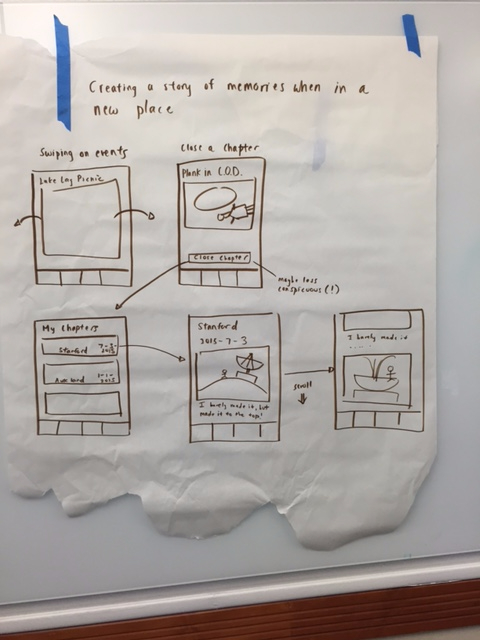 Creating a story of memories when in a
new place
Swiping on events
Close a Chapter
Lake Lag Picnic
Plank in C.O.D.
Close Chapter
maybe less
conspicuous (!)
My Chapters
Stanford 7-3-
2015
2015
Stanford
2015-7-3
I barely made it, but
made it to the
scroll
I barely made it